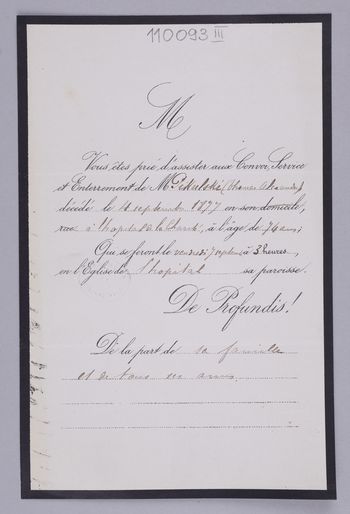 110093 III
M
Vous êtes prié d'assister aux Convoi, Service
et Enterrement de M Pekalski
décédé le 4 septembre 1877 en son domicile,
rue à l'hopital de la à l'âge de 76 ans;
Qui se feront le vendredi 7 septem à 3 heures,
en l'Eglise de l'hopital sa paroisse.
De Profundis!
De la part de sa famille
et de tous ses amis